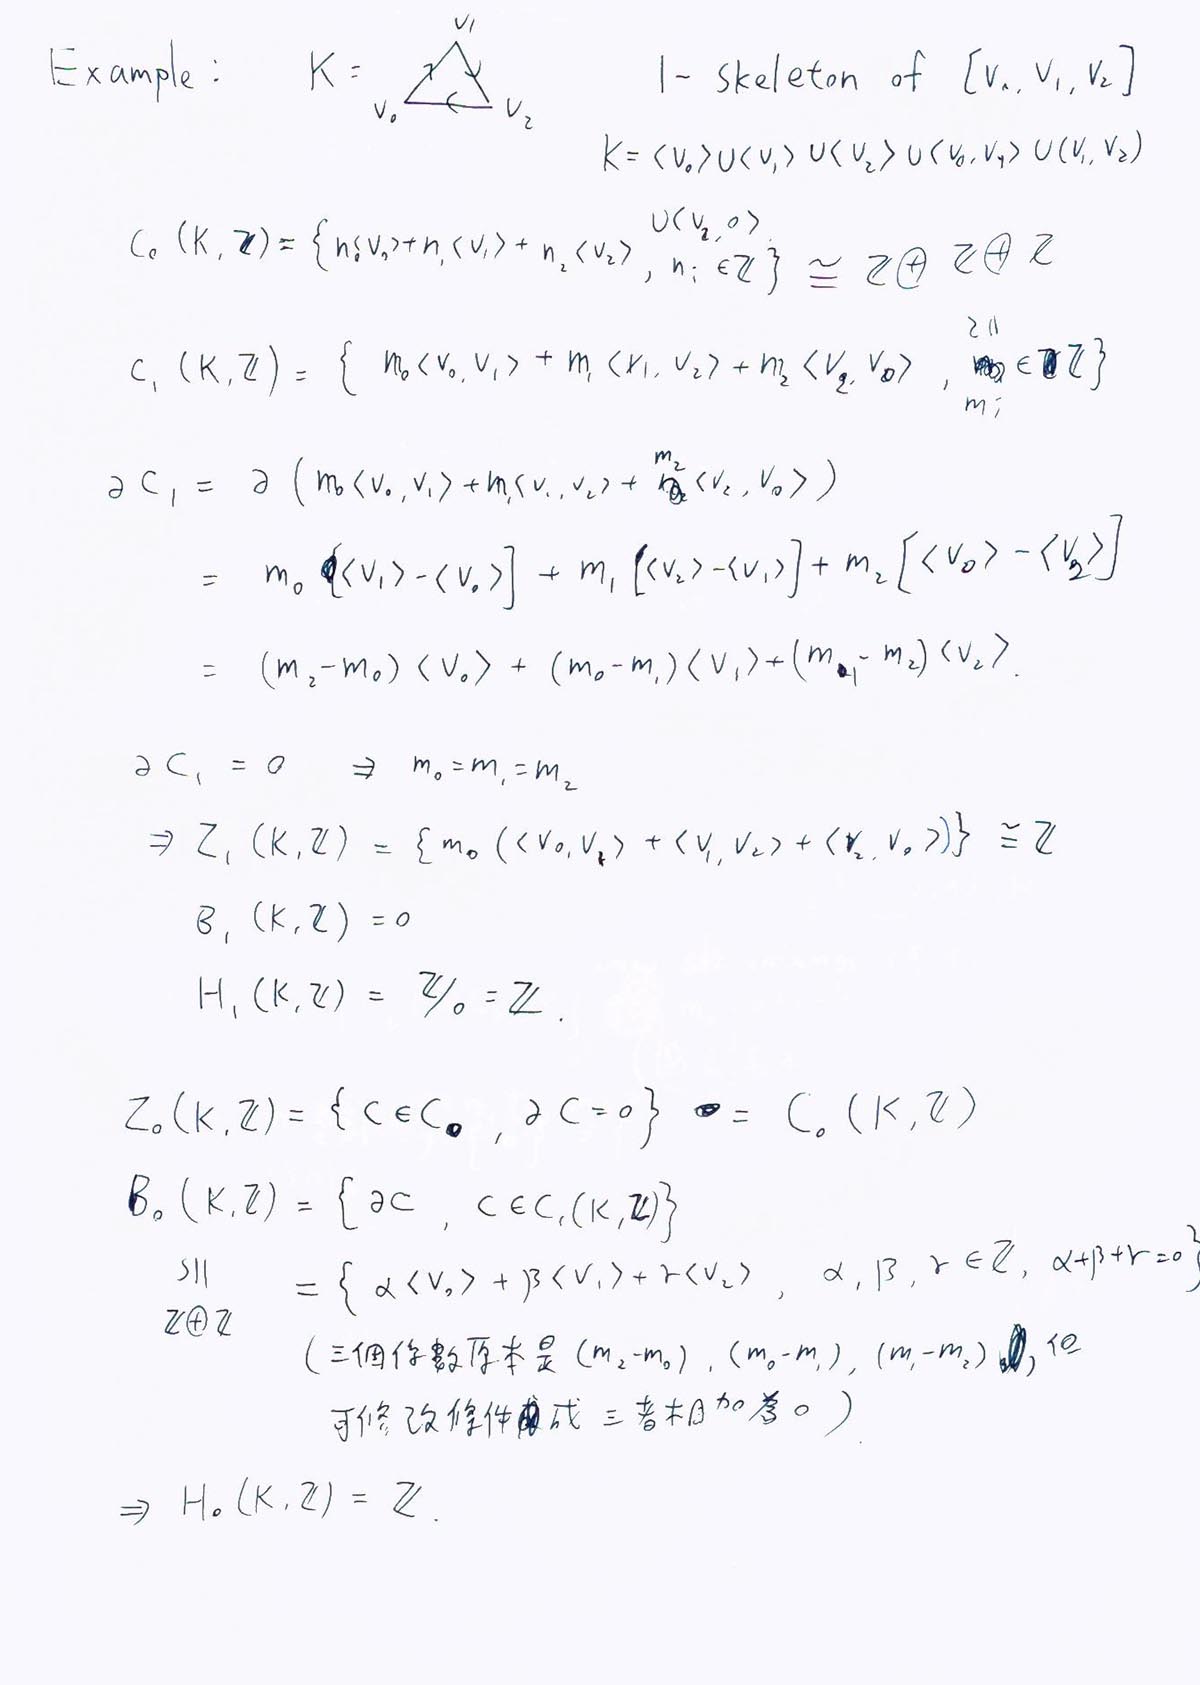 Example: K = v₁ v₀ v₂ 1-skeleton of [v₀, v₁, v₂]
K = ⟨v₀⟩∪⟨v₁⟩∪⟨v₂⟩∪⟨v₀,v₁⟩∪⟨v₁,v₂⟩
∪⟨v₂,0⟩
C₀(K,ℤ) = {n₀⟨v₀⟩+n₁⟨v₁⟩+n₂⟨v₂⟩, nᵢ∈ℤ} ≅ ℤ⊕ℤ⊕ℤ
C₁(K,ℤ) = { m₀⟨v₀,v₁⟩ + m₁⟨v₁,v₂⟩ + m₂⟨v₂,v₀⟩, mᵢ ∈ ℤ}
∂C₁ = ∂(m₀⟨v₀,v₁⟩+m₁⟨v₁,v₂⟩+m₂⟨v₂,v₀⟩)
= m₀[⟨v₁⟩-⟨v₀⟩] + m₁[⟨v₂⟩-⟨v₁⟩] + m₂[⟨v₀⟩-⟨v₂⟩]
= (m₂-m₀)⟨v₀⟩ + (m₀-m₁)⟨v₁⟩+(m₁-m₂)⟨v₂⟩.
∂C₁ = 0 ⇒ m₀=m₁=m₂
⇒ Z₁(K,ℤ) = {m₀(⟨v₀,v₁⟩ + ⟨v₁,v₂⟩ + ⟨v₂,v₀⟩)} ≅ ℤ
B₁(K,ℤ) = 0
H₁(K,ℤ) = ℤ/0 = ℤ.
Z₀(K,ℤ) = {C∈C₀, ∂C=0} = C₀(K,ℤ)
B₀(K,ℤ) = {∂C, C∈C₁(K,ℤ)}
≅ = {α⟨v₀⟩+β⟨v₁⟩+γ⟨v₂⟩, α,β,γ∈ℤ, α+β+γ=0}
ℤ⊕ℤ
(三個係數原本是(m₂-m₀),(m₀-m₁),(m₁-m₂),但
可修改條件成三者相加為0)
⇒ H₀(K,ℤ) = ℤ.